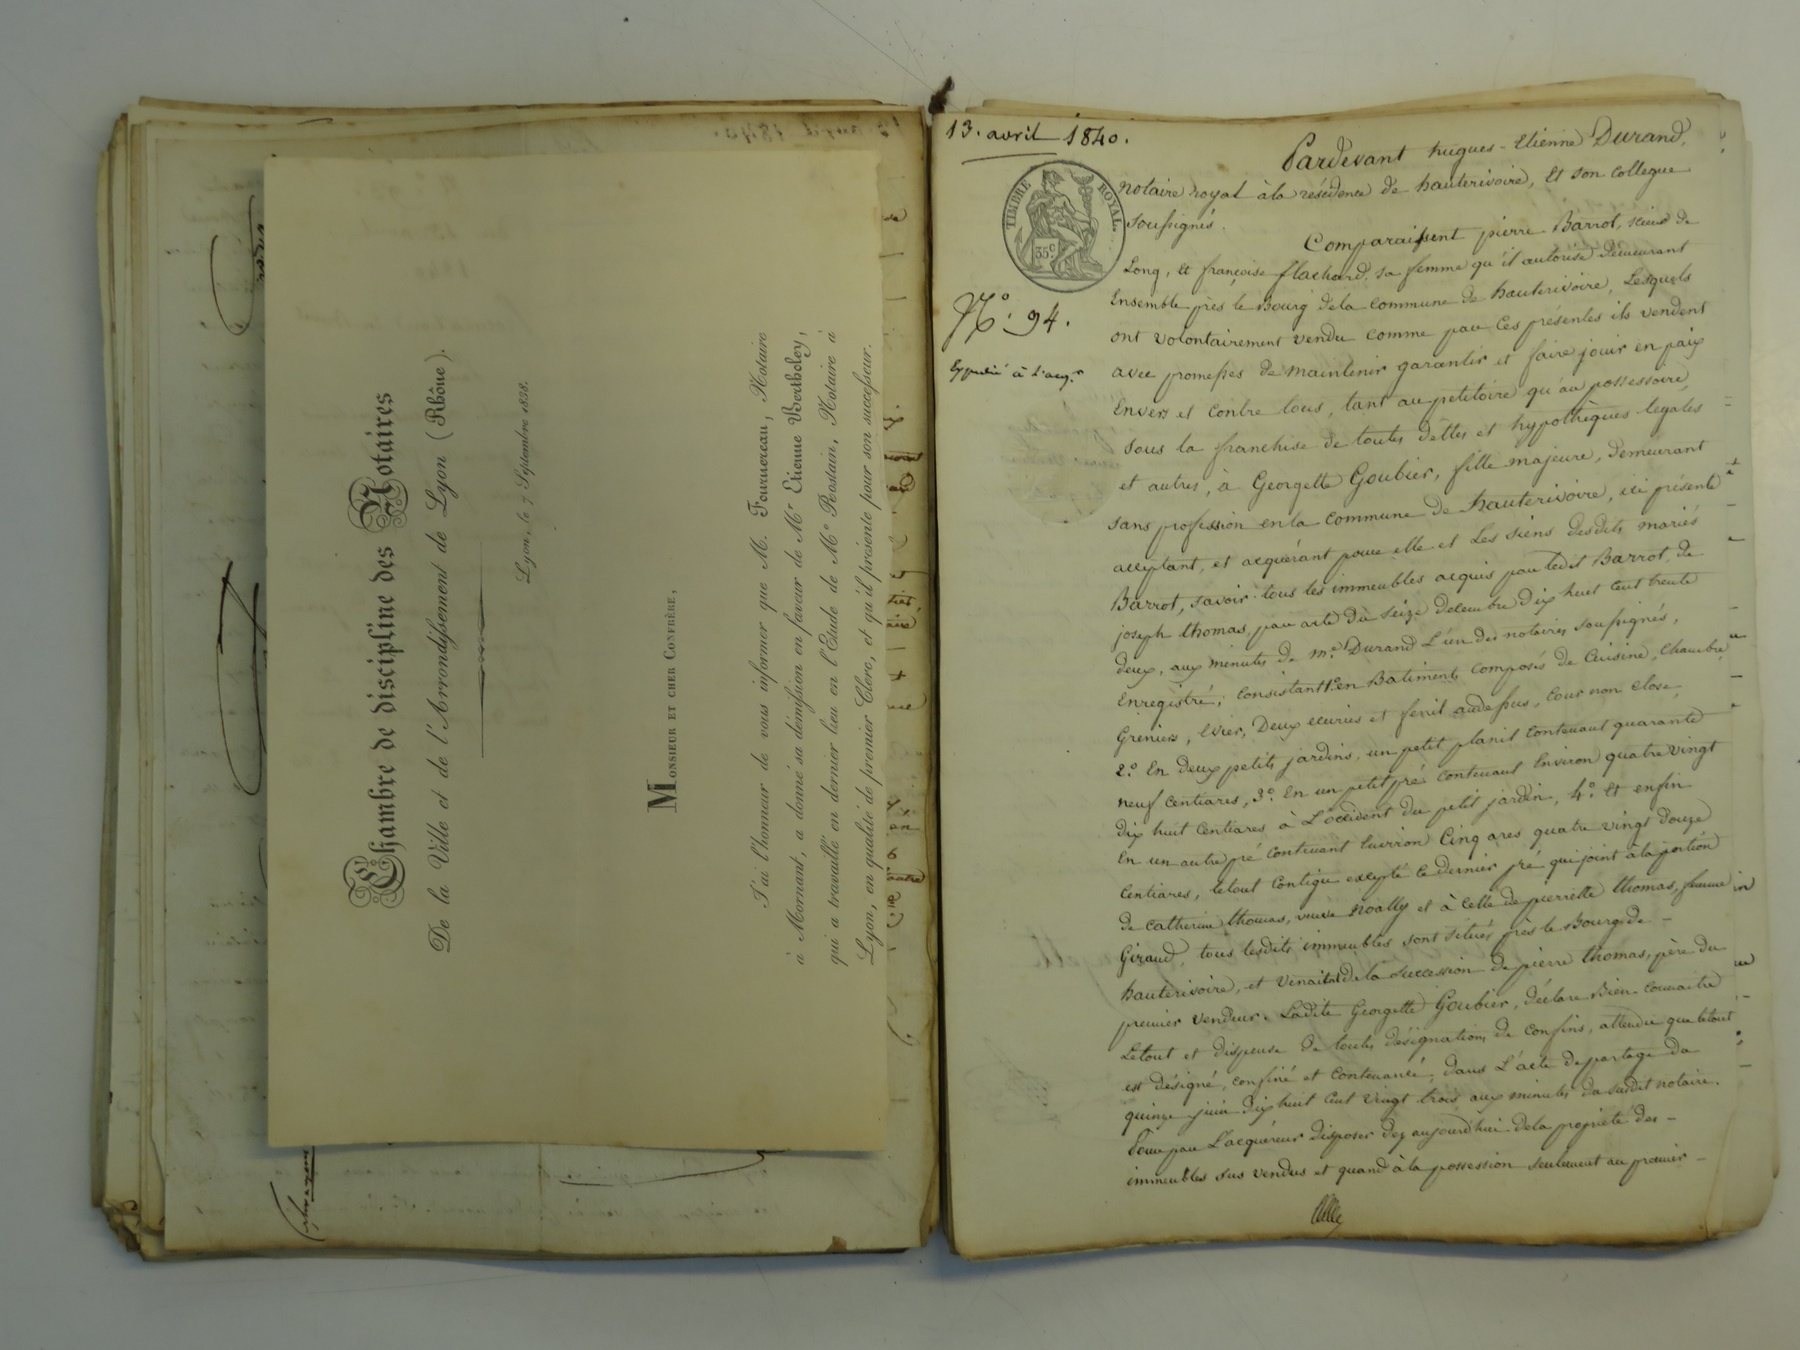 Chambre de discipline des Notaires
De la Ville et de l'Arrondissement de Lyon (Rhône).
Lyon, le 7 Septembre 1838.
MONSIEUR ET CHER CONFRÈRE,
J'ai l'honneur de vous informer que M. Fournereau, Notaire
à Mornant, a donné sa démission en faveur de Mr Etienne Bertholey,
qui a travaillé en dernier lieu en l'Etude de Me Rostain, Notaire à
Lyon, en qualité de premier Clerc, et qu'il présente pour son successeur.
13. avril 1840.
TIMBRE ROYAL.
35c
No. 94.
Expédié à l'acqr
Pardevant hugues-Etienne Durand,
notaire royal à la résidence de hauterivoire, Et son collegue
soussignés.
Comparaissent pierre Barrot, scieur de
Long, et françoise flachard, sa femme qu'il autorise Demeurant
Ensemble près le Bourg de la commune de hauterivoire, Lesquels
ont volontairement vendu comme par Ces présentes ils vendent
avec promesses de maintenir garantir et faire jouir en paix
Envers et Contre tous, tant au petitoire qu'au possessoire,
sous la franchise de toutes Dettes et hypothèques legales
et autres, à Georgette Goubier, fille majeure, Demeurant
sans profession en la Commune de hauterivoire, ici présente
acceptant, et acquérant pour elle et Les siens desdits mariés
Barrot, savoir: tous les immeubles acquis par ledit Barrot, de
joseph thomas, par acte du seize decembre Dix huit Cent trente
deux, aux minutes de me Durand L'un des notaires soussignés,
Enregistré; Consistant 1o en Batiments Composés de Cuisine, Chambre,
Greniers, Evier, Deux ecuries et fenil audessus, Cour non close,
2o. En deux petits jardins, un petit planil Contenant quarante
neuf Centiares, 3o. En un petit pré Contenant Environ quatre vingt
dix huit Centiares à L'occident du petit jardin, 4o. Et enfin
En un autre pré Contenant Environ Cinq ares quatre vingt Douze
Centiares, le tout Contigu excepté ce dernier pré qui joint à la portion
de Catherine thomas, veuve Noally et à celle de pierrette thomas, femme
Giraud, tous lesdits immeubles sont situés près le Bourg de -
hauterivoire, et venaient de la succession de pierre thomas, père du
premier vendeur. Ladite Georgette Goubier, déclare Bien Connaitre
Le tout et dispense de toutes désignations de Confins, attendu que le tout
est désigné, confiné et Contenancé, dans L'acte de partage du
quinze juin dix huit Cent vingt trois aux minutes du susdit notaire.
Pour par L'acquéreur disposer dez aujourd'hui de la propriété des -
immeubles sus vendus et quand à la possession seulement au premier -